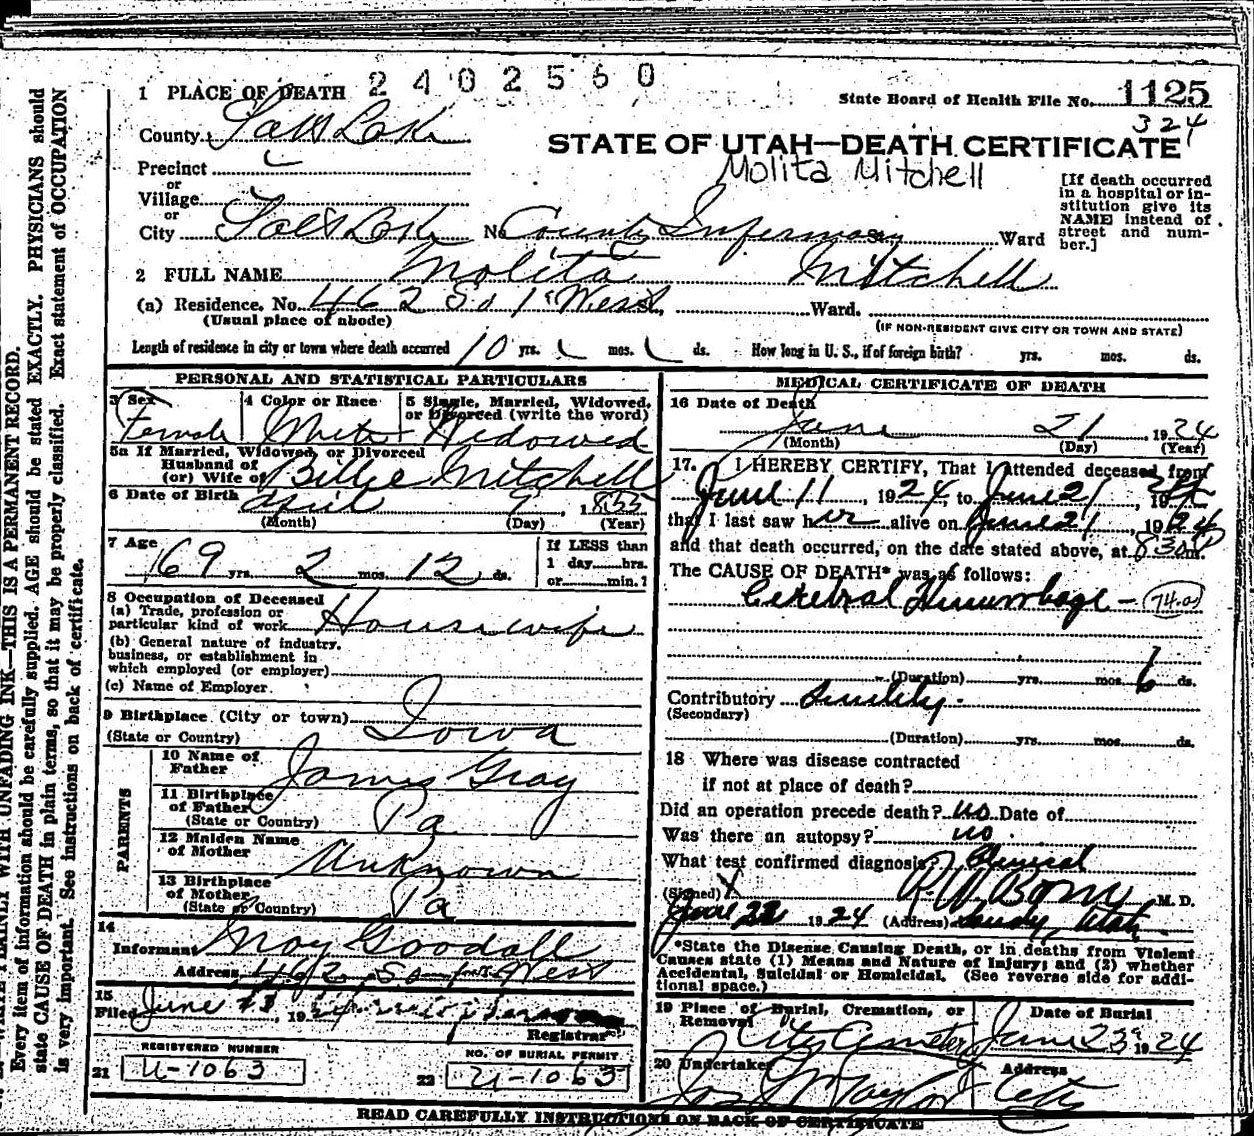 2402560
1 PLACE OF DEATH
State Board of Health File No. 1125
324
County Salt Lake
STATE OF UTAH—DEATH CERTIFICATE
Molita Mitchell
Precinct
or
Village
or
City Salt Lake No. County Infirmary Ward
[If death occurred
in a hospital or in-
stitution give its
NAME instead of
street and num-
ber.]
2 FULL NAME Molita Mitchell
(a) Residence. No. 462 So 1st West, Ward.
(Usual place of abode)
(IF NON-RESIDENT GIVE CITY OR TOWN AND STATE)
Length of residence in city or town where death occurred 10 yrs. mos. ds. How long in U. S., if of foreign birth? yrs. mos. ds.
PERSONAL AND STATISTICAL PARTICULARS
3 Sex
4 Color or Race
5 Single, Married, Widowed,
or Divorced (write the word)
Female White Widowed
5a If Married, Widowed or Divorced
Husband of
(or) Wife of Billie Mitchell
6 Date of Birth April 9, 1855
(Month) (Day) (Year)
7 Age
69 yrs. 2 mos. 12 ds.
If LESS than
1 day hrs.
or min.?
8 Occupation of Deceased
(a) Trade, profession or
particular kind of work Housewife
(b) General nature of industry,
business, or establishment in
which employed (or employer)
(c) Name of Employer
9 Birthplace (City or town)
(State or Country) Iowa
PARENTS
10 Name of
Father James Gray
11 Birthplace
of Father
(State or Country) Pa
12 Maiden Name
of Mother Unknown
13 Birthplace
of Mother
(State or Country) Pa
14
Informant May Goodall
Address 462 So 1st West
15
Filed June 23, 1924
Registrar
REGISTERED NUMBER
21 U-1063
NO. OF BURIAL PERMIT
22 U-1063
MEDICAL CERTIFICATE OF DEATH
16 Date of Death
June 21, 1924
(Month) (Day) (Year)
17. I HEREBY CERTIFY, That I attended deceased from
June 11, 1924, to June 21, 1924
that I last saw her alive on June 21, 1924
and that death occurred, on the date stated above, at 830 P m.
The CAUSE OF DEATH* was as follows:
Cerebral Hemorrhage — 74.a
(Duration) yrs. mos. 6 ds.
Contributory Senility.
(Secondary)
(Duration) yrs. mos. ds.
18 Where was disease contracted
if not at place of death?
Did an operation precede death? no Date of
Was there an autopsy? no.
What test confirmed diagnosis? Clinical
(Signed) M. D.
June 22 1924 (Address) Sandy, Utah
*State the Disease Causing Death, or in deaths from Violent
Causes state (1) Means and Nature of Injury; and (2) whether
Accidental, Suicidal or Homicidal. (See reverse side for addi-
tional space.)
19 Place of Burial, Cremation, or
Removal
City Cemetery
Date of Burial
June 23, 1924
20 Undertaker
Jos Wm Taylor
Address
City
READ CAREFULLY INSTRUCTIONS ON BACK OF CERTIFICATE
WRITE PLAINLY WITH UNFADING INK—THIS IS A PERMANENT RECORD.
Every item of information should be carefully supplied. AGE should be stated EXACTLY. PHYSICIANS should
state CAUSE OF DEATH in plain terms, so that it may be properly classified. Exact statement of OCCUPATION
is very important. See instructions on back of certificate.